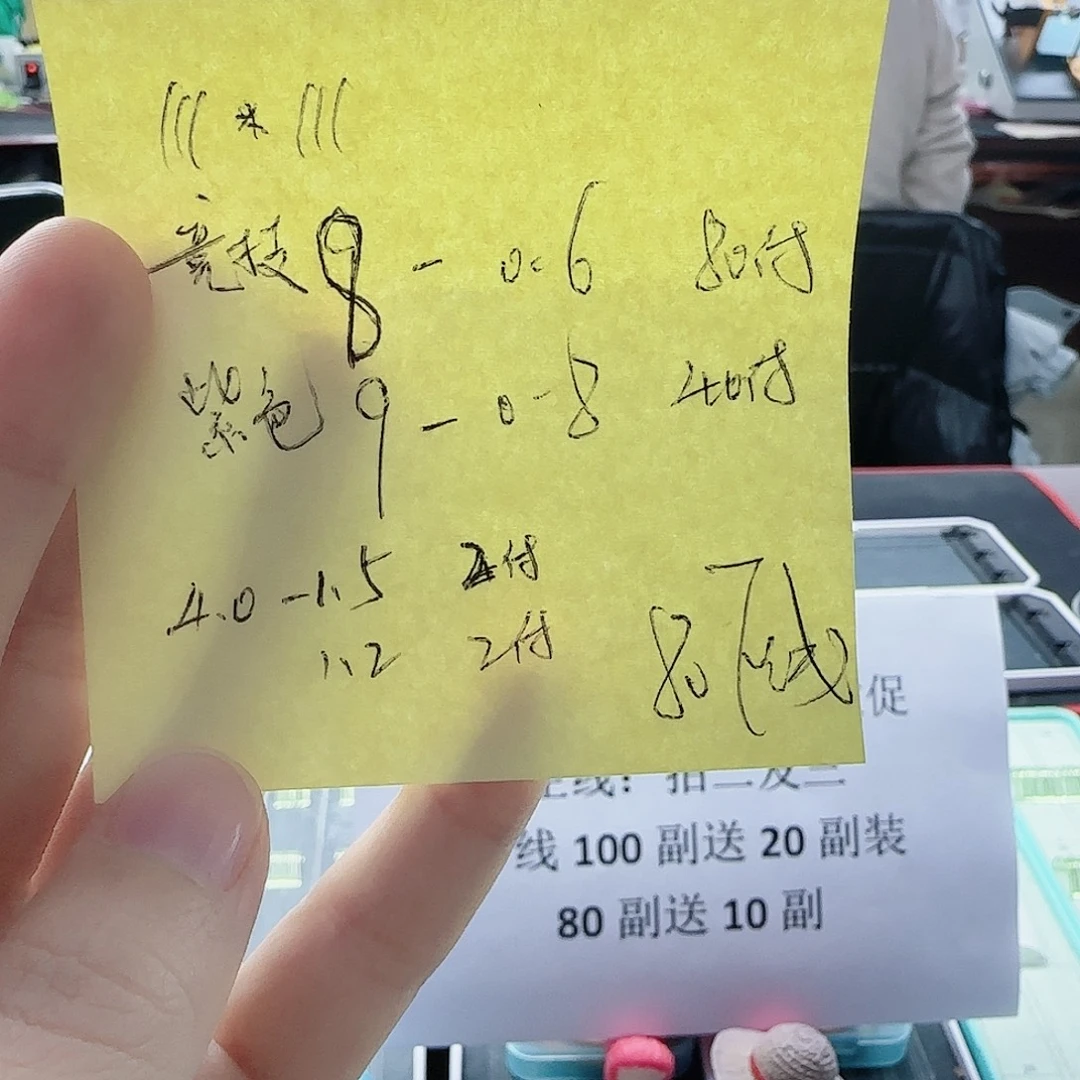 111 * 111
竞技 8 - 0.6 80付
紫色 9 - 0.8 40付
4.0 - 1.5 2付
1.2 2付
80下线
促
主线：拍二发三
线 100 副送 20 副装
80 副送 10 副